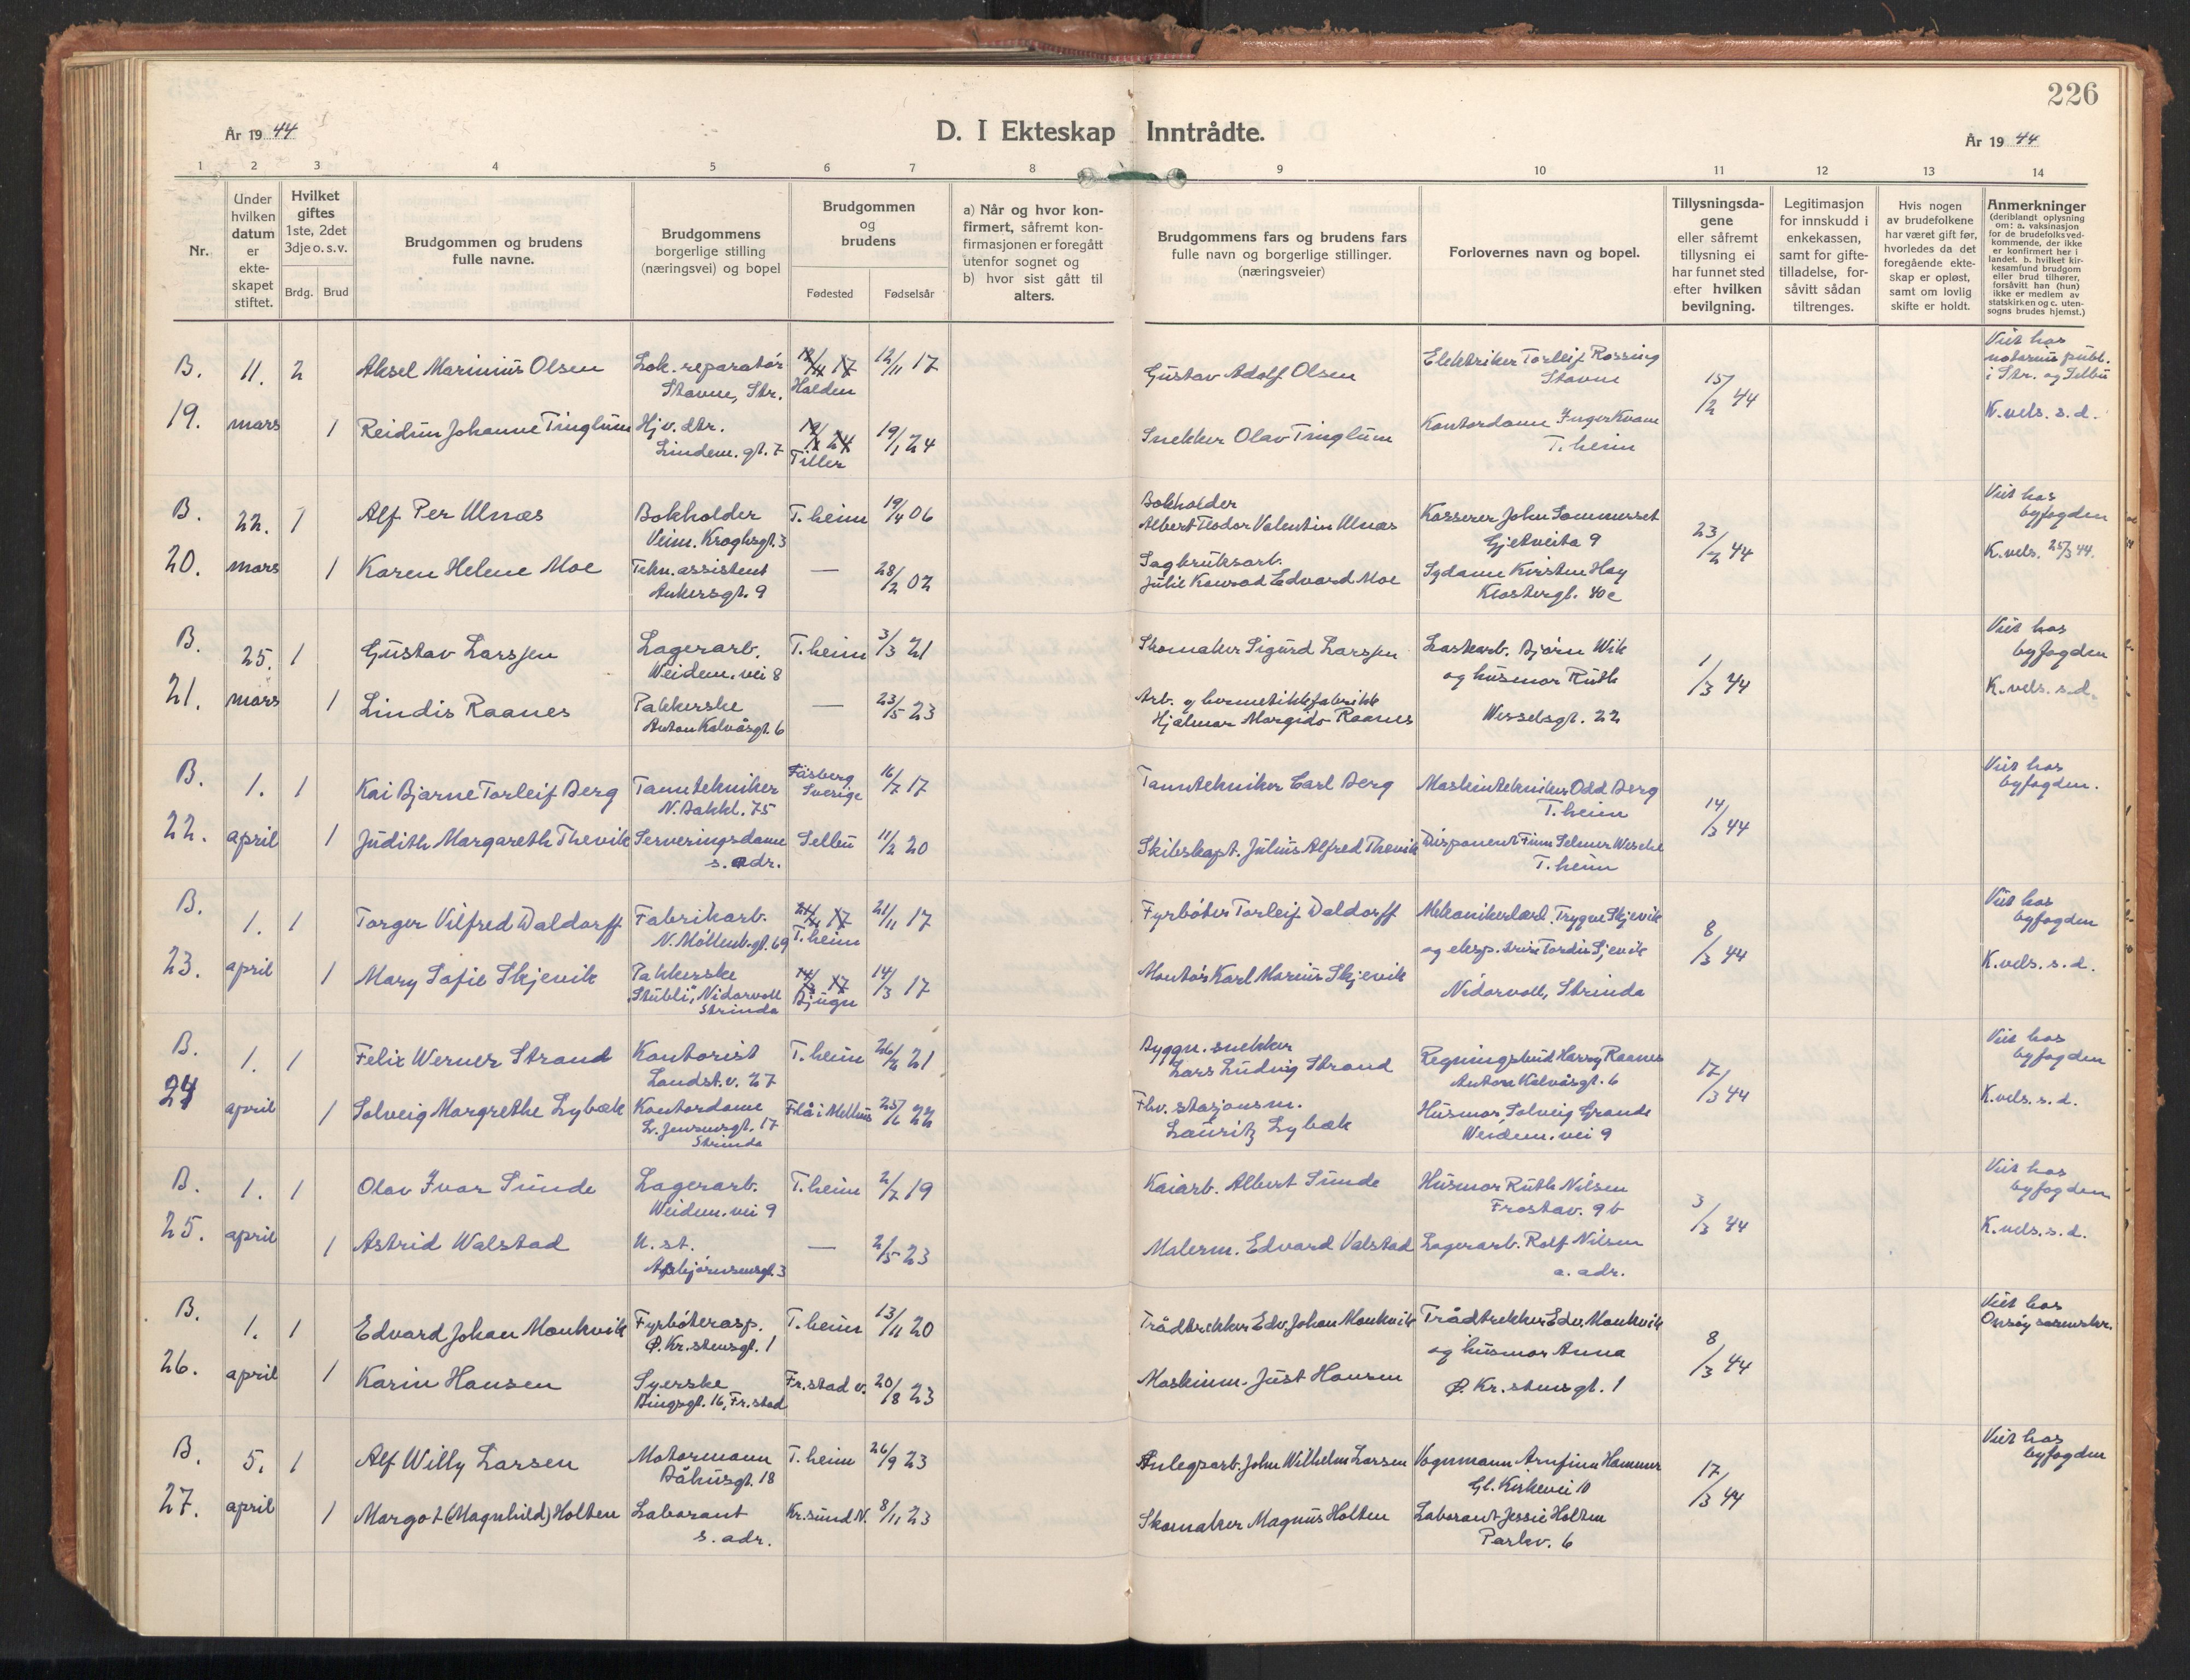 226
År 19 44
D. I Ekteskap Inntrådte.
År 19 44
1 2 3 4 5 6 7 8 9 10 11 12 13 14
Nr.
Under
hvilken
datum
er
ekte-
skapet
stiftet.
Hvilket
giftes
1ste, 2det
3dje o. s. v.
Brdg. Brud
Brudgommen og brudens
fulle navne.
Brudgommens
borgerlige stilling
(næringsvei) og bopel
Brudgommen
og
brudens
Fødested Fødselsår
a) Når og hvor kon-
firmert, såfremt kon-
firmasjonen er foregått
utenfor sognet og
b) hvor sist gått til
alters.
Brudgommens fars og brudens fars
fulle navn og borgerlige stillinger.
(næringsveier)
Forlovernes navn og bopel.
Tillysningsda-
gene
eller såfremt
tillysning ei
har funnet sted
efter hvilken
bevilgning.
Legitimasjon
for innskudd i
enkekassen,
samt for gifte-
tilladelse, for-
såvitt sådan
tiltrenges.
Hvis nogen
av brudefolkene
har været gift før,
hvorledes da det
foregående ekte-
skap er opløst,
samt om lovlig
skifte er holdt.
Anmerkninger
(deriblandt oplysning
om: a. vaksinasjon
for de brudefolks ved-
kommende, der ikke
er konfirmert her i
landet. b. hvilket kir-
kesamfund brudgom
eller brud tilhører,
forsåvitt han (hun)
ikke er medlem av
statskirken og c. uten-
sogns brudes hjemst.)
B. 11. 2 Aksel Marinius Olsen Lok. reparatør 12/11 17 12/11 17
Stavne, Str. Halden
Gustav Adolf Olsen Elektriker Torleif Rossing
Stavne
15/2 44
Viet hos
notarius publ.
i Str. og Selbu
K. vels. s. d.
19. mars 1 Reidun Johanne Tinglum Hj.v. dtr. 19/1 24
Lindem. gt. 7 Tiller
Snekker Olav Tinglum Kontordame Inger Kvam
T.heim
B. 22. 1 Alf Per Ulnæs Bokholder T.heim 19/4 06
Veim. Kroghsgt. 3
Bokholder
Albert Teodor Valentin Ulnæs Kasserer John Sommerset
Gjetveita 9
23/2 44
Viet hos
byfogden
K.vels. 25/3 44.
20. mars 1 Karen Helene Moe Tekn. assistent — 28/2 02
Ankersgt. 9
Sagbruksarb.
Julie Konrad Edvard Moe Sydame Kirsten Høy
Klostergt. 40c
B. 25. 1 Gustav Larssen Lagerarb. T.heim 3/3 21
Weidem. vei 8
Skomaker Sigurd Larssen Lastearb. Bjørn Wik
og husmor Ruth
1/3 44
Viet hos
byfogden
K. vels. s.d.
21. mars 1 Lindis Raanes Pakkerske — 23/5 23
Anton Kalvåsgt. 6
Arb. v hermetikkfabrikk
Hjalmar Margido Raanes Wesselsgt. 22
B. 1. 1 Kai Bjarne Torleif Berg Tanntekniker Fåsberg 16/7 17
N. Bakkl. 75 Sverige
Tanntekniker Carl Berg Maskintekniker Odd Berg
T.heim
14/3 44
Viet hos
byfogden.
22. april 1 Judith Margareth Thevik Serveringsdame Selbu 11/2 20
s. adr.
Skibskapt. Julius Alfred Thevik Disponent Finn Selmer Wesche
T.heim
B. 1. 1 Torger Vilfred Waldorff Fabrikarb. 21/11 17 21/11 17
N. Møllenb.gt. 69 T.heim
Fyrbøter Torleif Waldorff Mekanikerlært. Trygve Skjevik
og eksp. trise Tordis Sjevik
8/3 44
Viet hos
byfogden
K.vels. s. d.
23. april 1 Mary Sofie Skjevik Pakkerske 14/3 17 14/3 17
"Stubli", Nidarvoll Bjugn
Strinda
Montør Karl Marius Skjevik Nidarvoll, Strinda
B. 1. 1 Felix Werner Strand Kontorist T.heim 26/2 21
Landst.v. 27
Byggn. snekker
Lars Ludvig Strand Regningsbud Harry Raanes
Anton Kalvåsgt. 6
17/3 44
Viet hos
byfogden
K.vels. s. d.
24 april 1 Solveig Margrethe Lybæk Kontordame Flå i Melhus 25/6 22
L. Jensensgt. 17
Strinda
Fhv. stasjonsm.
Lauritz Lybæk Husmor Solveig Grande
Weidem. vei 9
B. 1. 1 Olav Ivar Sunde Lagerarb. T.heim 2/7 19
Weidem. vei 9
Kaiarb. Albert Sunde Husmor Ruth Nilsen
Frostav. 9b
3/3 44
Viet hos
byfogden
K.vels. s. d.
25. april 1 Astrid Walstad U. st. — 2/5 23
Asbjørnsensgt. 3
Malerm. Edvard Valstad Lagerarb. Rolf Nilsen
a. adr.
B. 1. 1 Edvard Johan Monkvik Fyrbøterasp. T.heim 13/11 20
Ø. Kr.stensgt. 1
Trådtrekker Edv. Johan Monkvik Trådtrekker Edv. Monkvik
og husmor Anna
8/3 44
Viet hos
Onsøy
26. april 1 Karin Hansen Syerske Fr.stad v. 20/8 23
Bingsgt. 16, Fr.stad
Maskinm. Just Hansen Ø. Kr.stensgt. 1
B. 5. 1 Alf Willy Larsen Motormann T.heim 26/9 23
Båhusgt. 18
Anlegsarb. John Wilhelm Larsen Vognmann Arnfinn Hammer
Gl. Kirkevei 10
17/3 44
Viet hos
byfogden
27. april 1 Margot (Magnhild) Holten Laborant Kr.sund N. 8/11 23
s. adr.
Skomaker Magnus Holten Laborant Jessie Holten
Parkv. 6